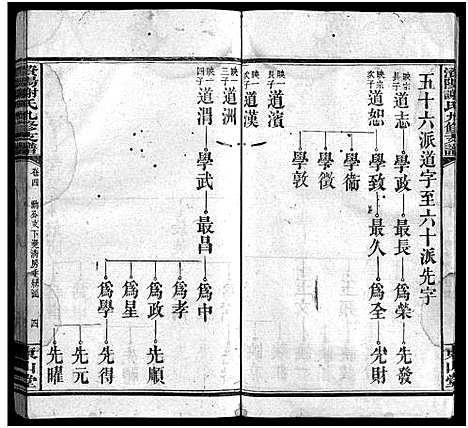 五十六派道字至六十派先字
映宗長子 道志 學政 最長 爲榮 先發
映宗次子 道恕 學致 最久 爲全 先財
學術
學徵
學敦
映一長子 道濱
映一次子 道漢
映一三子 道洲
映一四子 道渭 學武 最昌 爲中
爲孝
爲政 先順
爲星
爲學 先得
先元
先曜
謝氏九修支譜
卷四
四
東山堂